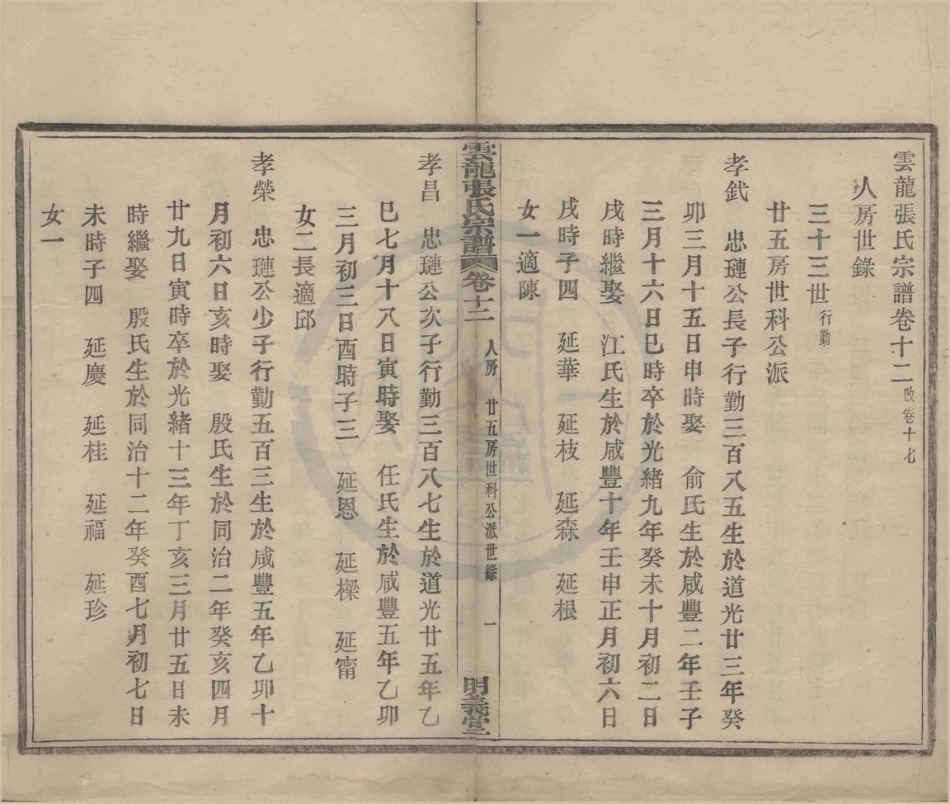 雲龍張氏宗譜卷十二改卷十七
人房世錄
三十三世行勤
廿五房世科公派
孝釴 忠璉公長子行勤三百八五生於道光廿三年癸
卯三月十五日申時娶 俞氏生於咸豐二年壬子
三月十六日巳時卒於光緒九年癸未十月初二日
戌時繼娶 江氏生於咸豐十年壬申正月初六日
戌時子四 延華 延枝 延森 延根
女一適陳
雲龍張氏宗譜 卷十二 人房 廿五房世科公派世錄 一 明義堂
孝昌 忠璉公次子行勤三百八七生於道光廿五年乙
巳七月十八日寅時娶 任氏生於咸豐五年乙卯
三月初三日酉時子三 延恩 延樑 延甯
女二長適邱
孝榮 忠璉公少子行勤五百三生於咸豐五年乙卯十
月初六日亥時娶 殷氏生於同治二年癸亥四月
廿九日寅時卒於光緒十三年丁亥三月廿五日未
時繼娶 殷氏生於同治十二年癸酉七月初七日
未時子四 延慶 延桂 延福 延珍
女一